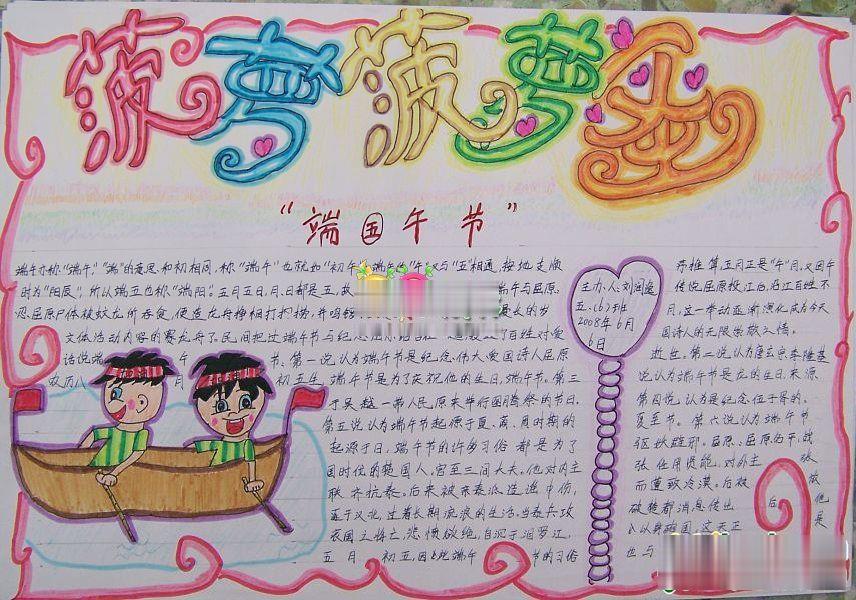 菠萝菠萝蜜
“端 午节”
端午亦称“端五”，“端”的意思和初相同，称“端午”也就如“初午” “午”又与“五”相通，按地支顺
时为“阳辰”，所以端五也称“端阳”。五月五日，月、日都是五，故 端午与屈原
忍屈原尸体被蛟龙所吞食，便造龙舟 长的岁
文体活动内容的赛龙舟了。民间把过端午节与纪念屈原 了百姓对爱
话说端 午 节、第一说认为端午节是纪念伟大爱国诗人屈原
农历 月 初五生，端午节是为了庆祝他的生日，端午节。第三
于吴越一带人民原来举行图腾祭的节日。
第五说认为端午节起源于夏、商、周时期的
起源于日，端午节的许多习俗都是为了
国时位的楚国人，官至三闾大夫。他对内主
联齐抗秦。后来被亲秦派造谣中伤，
过着长期流浪的生活。当秦兵攻
衣国之将亡，悲愤欲绝，自沉于汨罗江，
五月 初五，因此 端午 节的习俗
主办人：刘闻
五.(6)班
2008年6月
6日
五月正是“午”月，又因午
传说屈原投江后，沿江百姓不
月，这一举动逐渐演化成为今天
国诗人的无限崇敬之情。
逝世。第二说认为唐玄宗李隆基
说认为端午节是龙的生日，来源
第四说认为是纪念伍子胥的。
夏至节。第六说认为端午节
驱妖避邪。屈原，屈原名平，战
张任用贤能，对外主 张
而遭致冷漠。后被 放
破楚都消息传出 后 他
以身殉国，这天正 是
也与